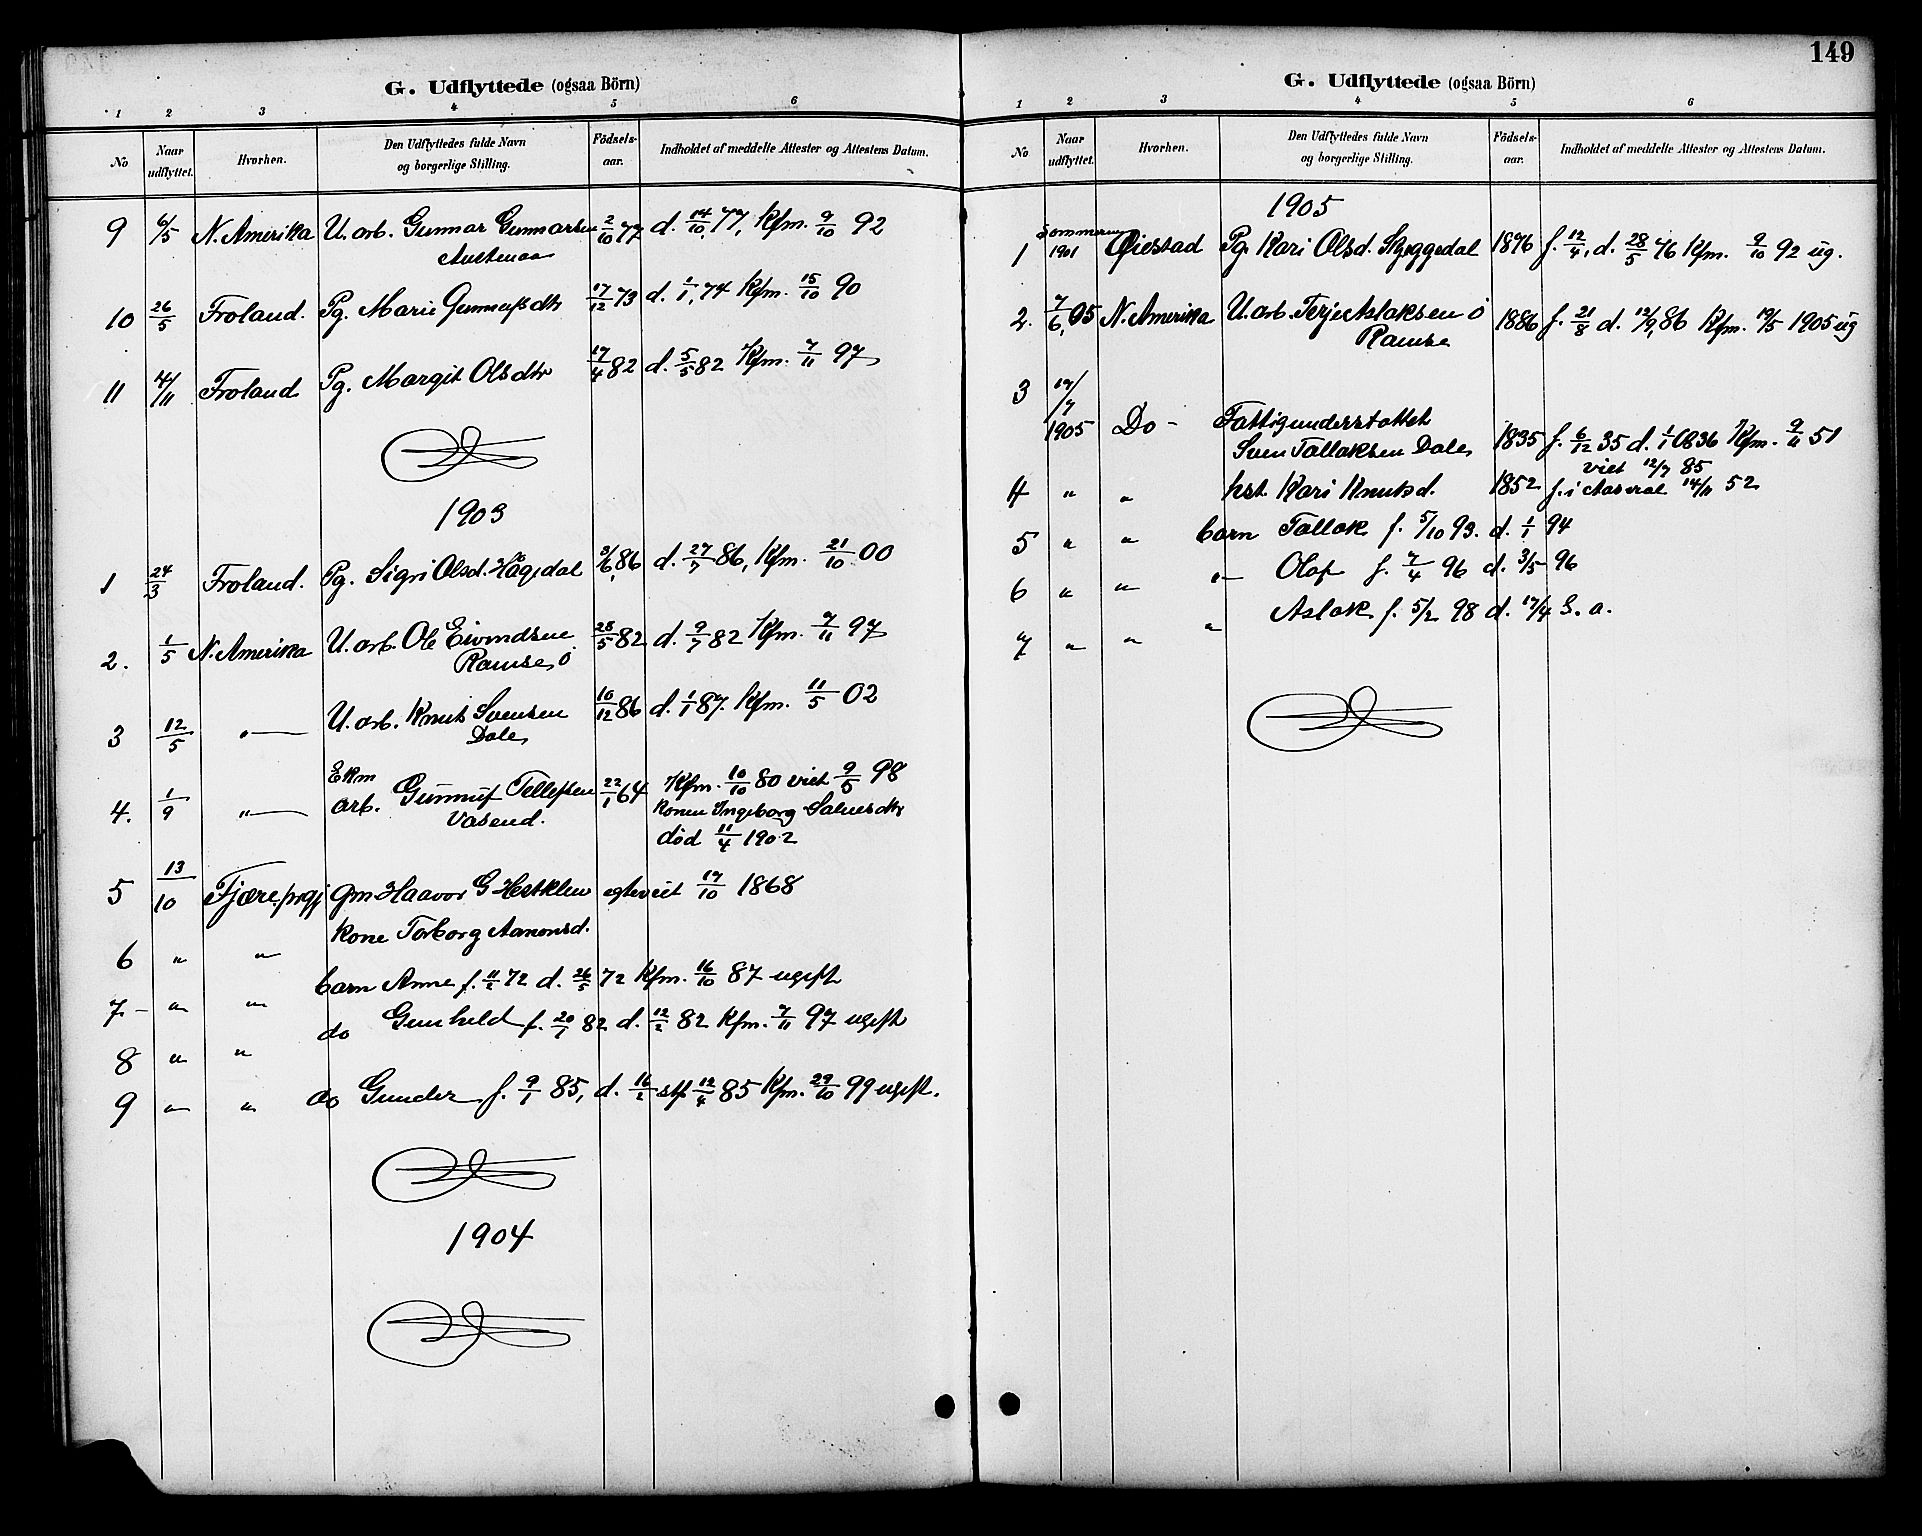 149
G. Udflyttede (ogsaa Börn)
1 2 3 4 5 6
No Naar udflyttet. Hvorhen. Den Udflyttedes fulde Navn og borgerlige Stilling. Födsels-aar. Indholdet af meddelte Attester og Attestens Datum.
9 6/5 N. Amerika U. arb. Gunnar Gunnarsen 2/10 77 d. 14/10 77, Kfm. 9/10 92
Austenaa
10 26/5 Froland. Pg. Marie Gunnulfsdtr 17/12 73 d. 1/1, 74 Kfm. 15/10 90
11 4/11 Froland Pg. Margit Olsdtr 17/4 82 d. 5/5 82 Kfm. 7/11 97
1903
1 24/3 Froland. Pg. Sigri Olsd. Hågedal 3/6, 86 d. 27/7 86, Kfm. 21/10 00
2. 1/5 N. Amerika U. arb. Ole Eivindsen 28/5 82 d. 9/7 82 Kfm. 7/11 97
Ramse ö
3 12/5 " U. arb. Knut Svensen 10/12 86 d. 1/1 87. Kfm. 11/5 02
Dale
4. 1/9 " Ekm arb. Gunnuf Tellefsen 22/1 64 Kfm. 10/10 80 viet 9/5 98
Vasend. Konen Ingeborg Salvesdtr
död 11/4 1902
5 13/10 Fjære prgj gm Haavor G Hestklev egteviet 17/10 1868
6 " " Kone Torborg Aanonsd.
7 - " " barn Anne f. 11/2 72 d. 26/5 72 Kfm. 16/10 87 ugift
8 " " do Gunhild f. 20/1 82 d. 12/2 82 Kfm. 7/11 97 ugift
9 " " do Gunder f. 9/1 85, d. 16/2 stf 12/4 85 Kfm. 29/10 99 ugift.
1904
G. Udflyttede (ogsaa Börn)
1 2 3 4 5 6
No Naar udflyttet. Hvorhen. Den Udflyttedes fulde Navn og borgerlige Stilling. Födsels-aar. Indholdet af meddelte Attester og Attestens Datum.
1905
1 Sommeren 1901 Øiestad Pg. Kari Olsd. Skjeggedal 1876 f. 12/4, d. 28/5 76 Kfm. 9/10 92 ug.
2. 7/6, 05 N. Amerika U. arb. Terje Aslaksen ö 1886 f. 21/8 d. 12/9, 86 Kfm. 19/5 1905 ug
Ramse
3 19/7 1905 Do - Fattigunderstøttet
Sven Tallaksen Dale 1835 f. 6/12 35 d. 1/1 36 Kfm. 9/11 51
viet 12/7 85
4 " " hst. Kari Knutsd. 1852 f. i Aaseral 14/11 52
5 " " barn Tallak f. 5/10 93. d. 1/1 94
6 " " " Olaf f. 7/4 96 d. 3/5 96
7 " " " Aslak f. 5/2 98 d. 17/4 S. a.